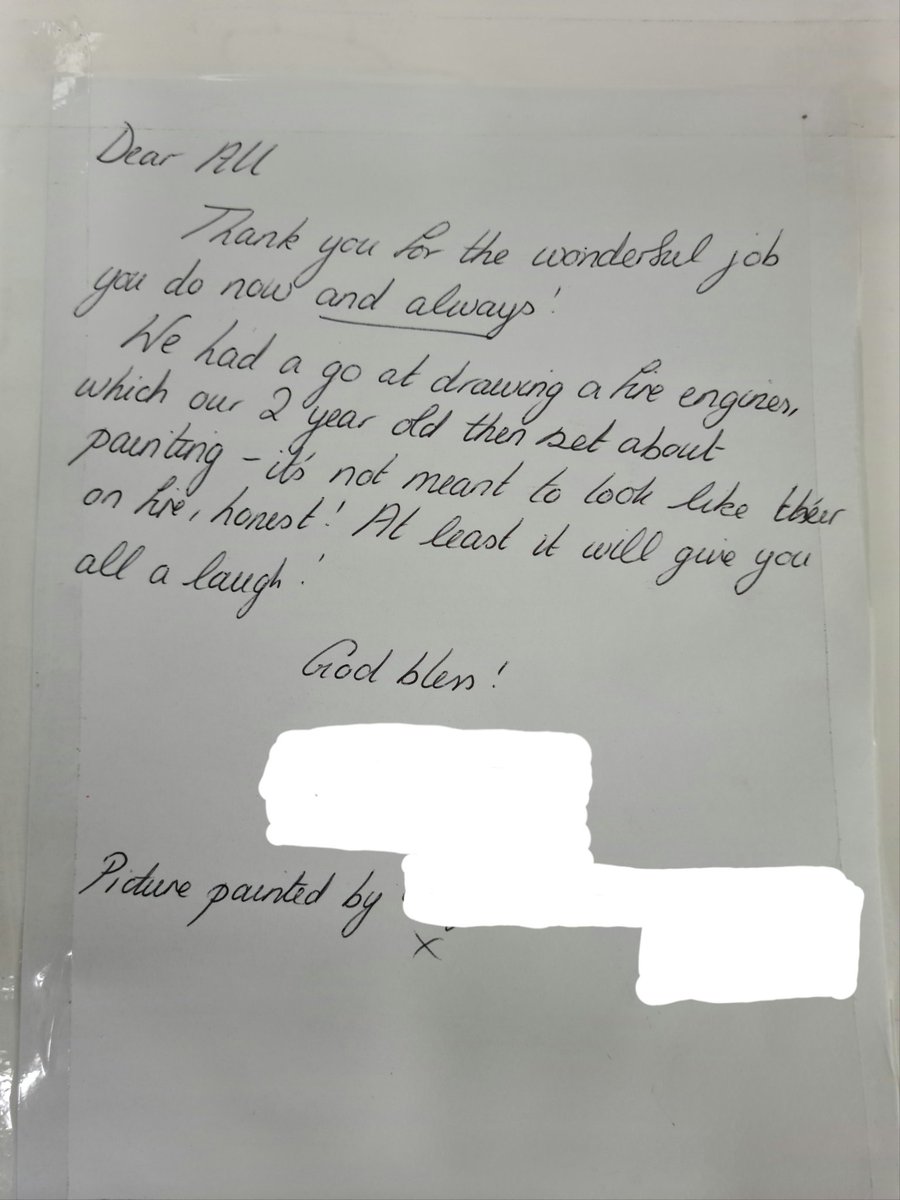 Dear All
Thank you for the wonderful job
you do now and always!
We had a go at drawing a fire engines,
which our 2 year old then set about
painting - it's not meant to look like their
on fire, honest! At least it will give you
all a laugh!
God bless!
Picture painted by
x